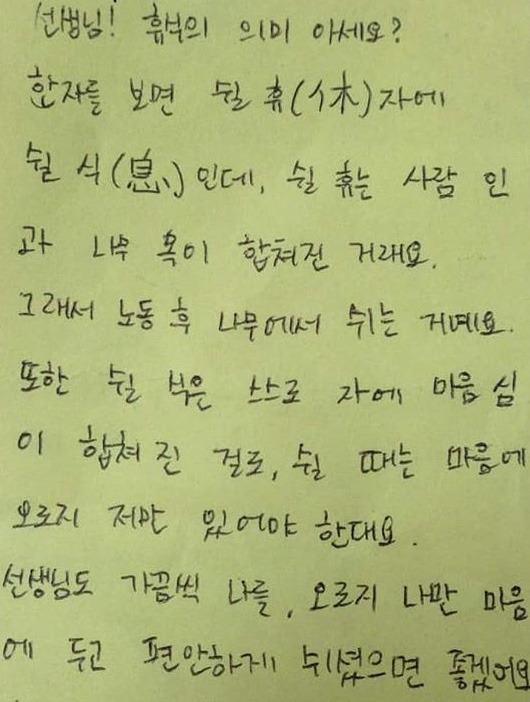 선생님! 휴식의 의미 아세요?
한자를 보면 쉴 휴(休)자에
쉴 식(息)인데, 쉴 휴는 사람 인
과 나무 목이 합쳐진 거래요.
그래서 노동 후 나무에서 쉬는 거예요.
또한 쉴 식은 스스로 자에 마음 심
이 합쳐진 걸로, 쉴 때는 마음에
오로지 저만 있어야 한대요.
선생님도 가끔씩 나를, 오로지 나만 마음
에 두고 편안하게 쉬셨으면 좋겠어요